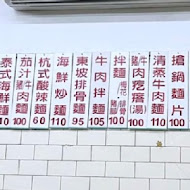 搶鍋麵片
190
清蒸牛肉麵
110
牛肉疙瘩(湯)
100
拌麵
100
牛肉拌麵
105
東坡排骨麵
95
海鮮炒麵
110
杭式酸辣麵
60
茄汁牛肉麵
100
泰式海鮮麵
110